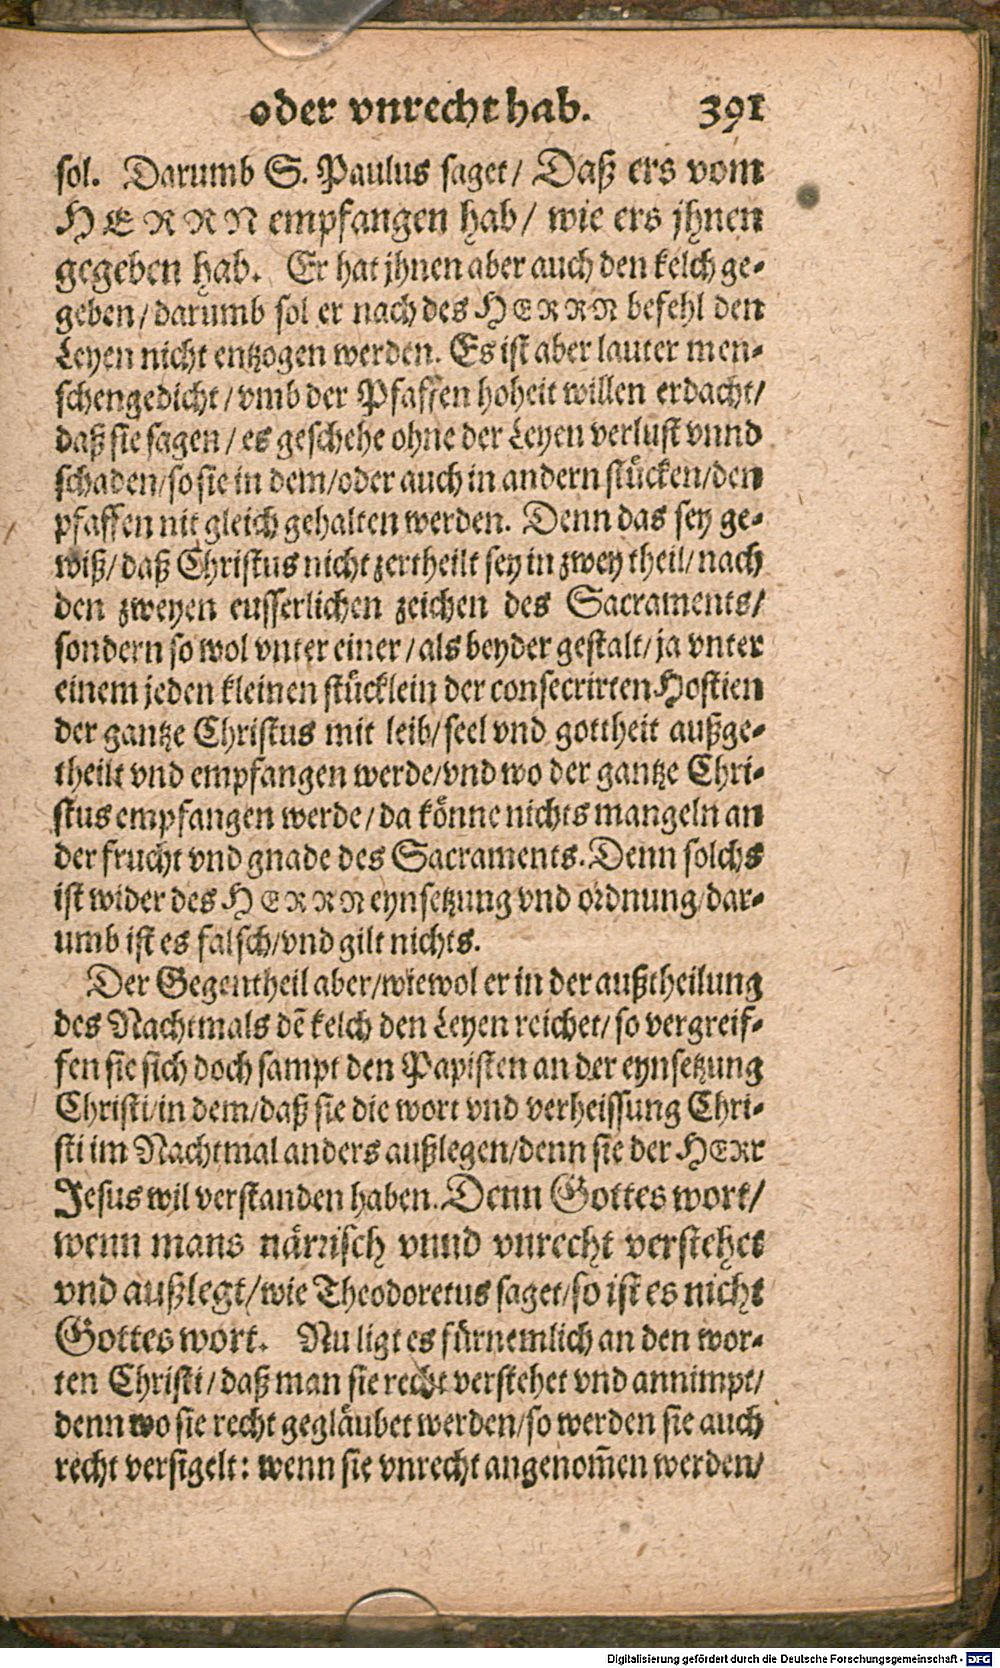 oder vnrecht hab. 391
sol. Darumb S. Paulus saget/ Daß ers vom
HERRN empfangen hab/ wie ers jhnen
gegeben hab. Er hat jhnen aber auch den kelch ge-
geben/darumb sol er nach des HERRN befehl den
Leyen nicht entzogen werden. Es ist aber lauter men-
schengedicht/vmb der Pfaffen hoheit willen erdacht/
daß sie sagen/es geschehe ohne der Leyen verlust vnnd
schaden/so sie in dem/oder auch in andern stücken/den
pfaffen nit gleich gehalten werden. Denn das sey ge-
wiß/daß Christus nicht zertheilt sey in zwey theil/nach
den zweyen eusserlichen zeichen des Sacraments/
sondern so wol vnter einer/als beyder gestalt/ja vnter
einem jeden kleinen stücklein der consecrirten Hostien
der gantze Christus mit leib/seel vnd gottheit außge-
theilt vnd empfangen werde/vnd wo der gantze Chri-
stus empfangen werde/da könne nichts mangeln an
der frucht vnd gnade des Sacraments. Denn solchs
ist wider des HERRN eynsetzung vnd ordnung/dar-
umb ist es falsch/vnd gilt nichts.
Der Gegentheil aber/wiewol er in der außtheilung
des Nachtmals dẽ kelch den Leyen reichet/so vergreif-
fen sie sich doch sampt den Papisten an der eynsetzung
Christi/in dem/daß sie die wort vnd verheissung Chri-
sti im Nachtmal anders außlegen/denn sie der HERr
Jesus wil verstanden haben. Denn Gottes wort/
wenn mans närrisch vnnd vnrecht verstehet
vnd außlegt/wie Theodoretus saget/so ist es nicht
Gottes wort. Nu ligt es fürnemlich an den wor-
ten Christi/daß man sie recht verstehet vnd annimpt/
denn wo sie recht gegläubet werden/so werden sie auch
recht versigelt: wenn sie vnrecht angenom̃en werden/
Digitalisierung gefördert durch die Deutsche Forschungsgemeinschaft - DFG